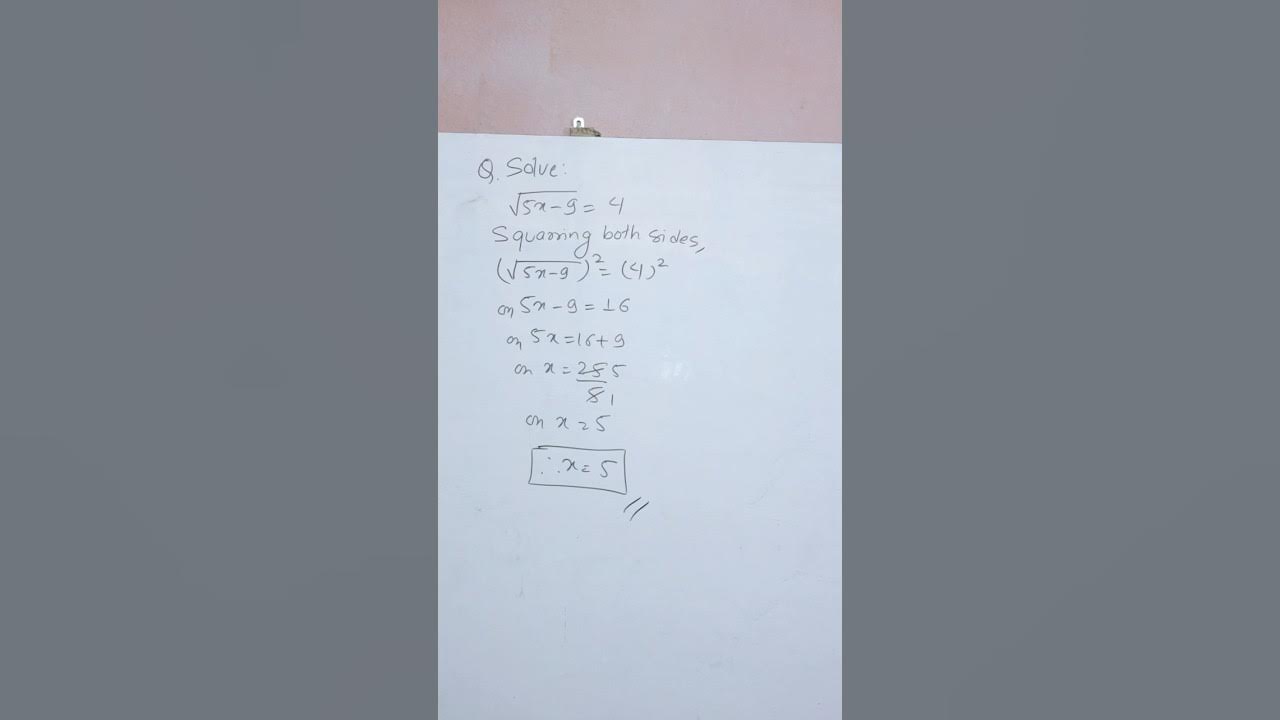 Q. Solve:
√5x-9 = 4
Squarring both sides,
(√5x-9)² = (4)²
or, 5x - 9 = 16
or, 5x = 16 + 9
or x = 25 5
5 1
or x = 5
∴ x = 5